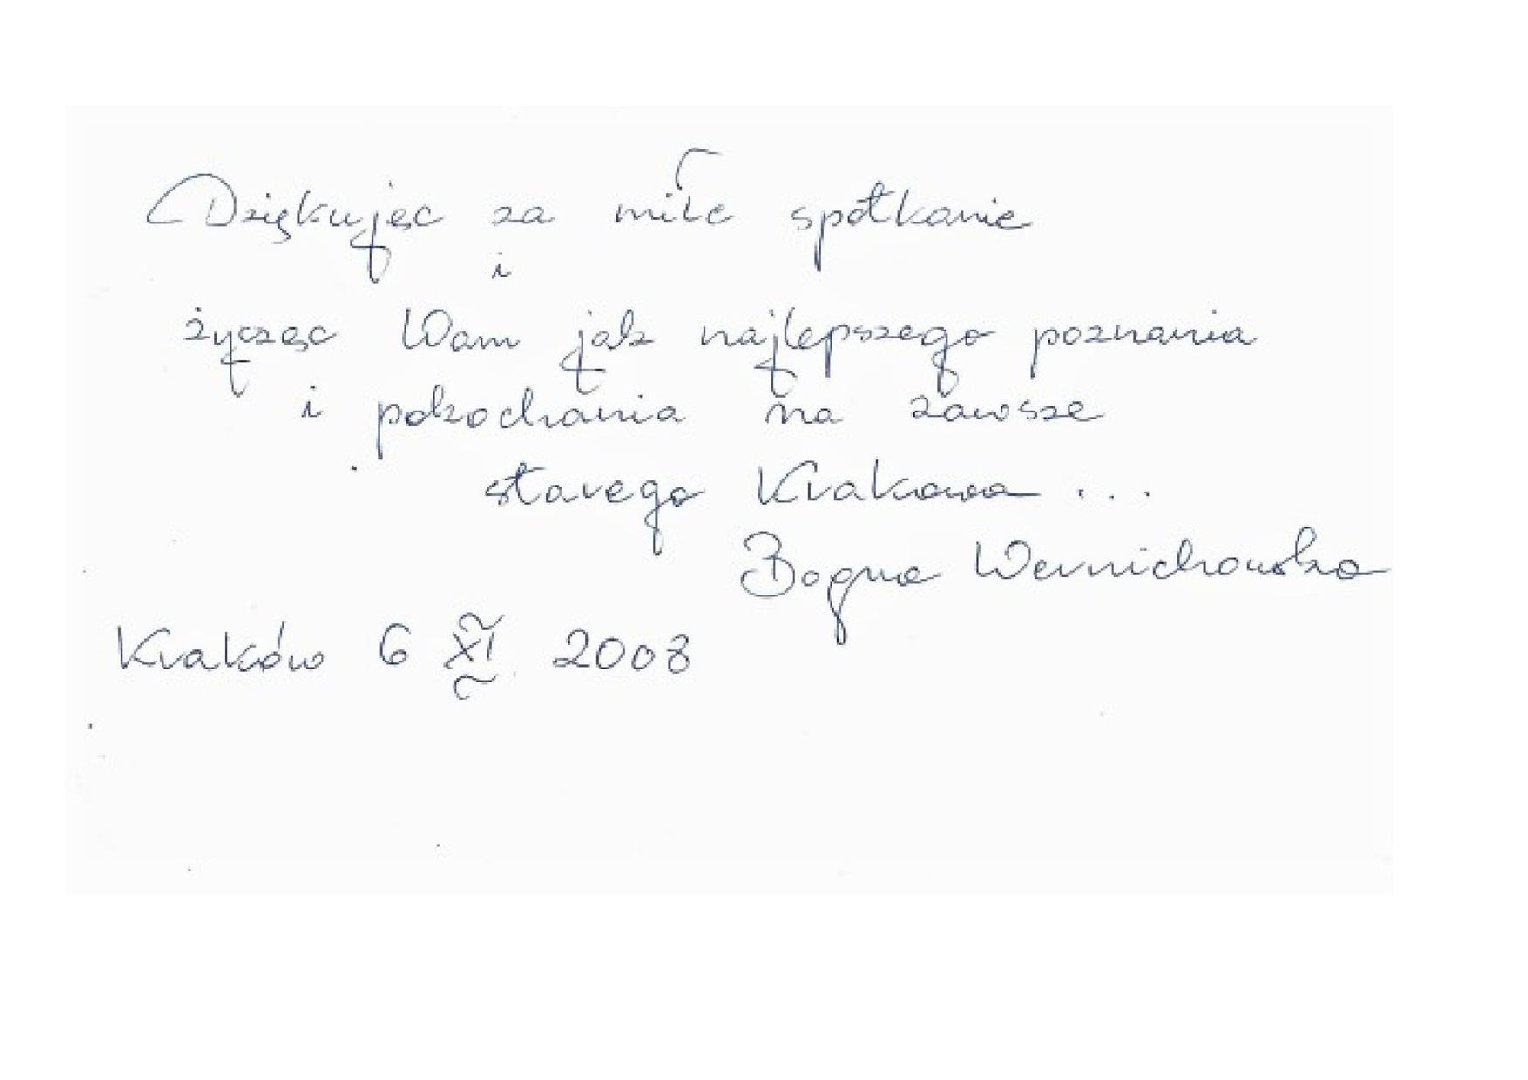 Dziękując za miłe spotkanie
i
życząc Wam jak najlepszego poznania
i pokochania na zawsze
starego Krakowa ...
Bogna Wernichowska
Kraków 6 XI 2008